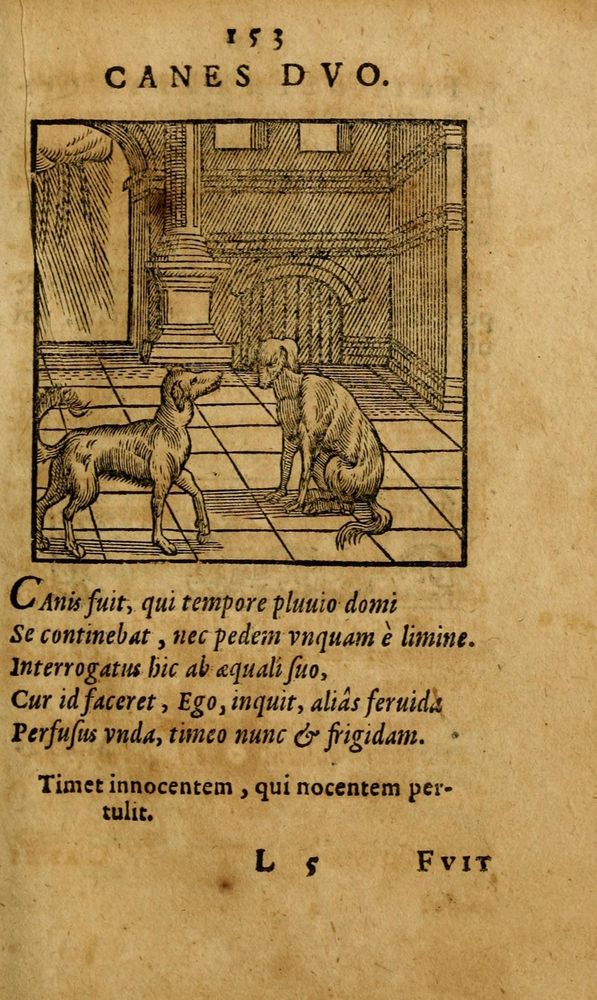 153
CANES DVO.
CAnis fuit, qui tempore pluuio domi
Se continebat, nec pedem vnquam è limine.
Interrogatus hic ab æquali ſuo,
Cur id faceret, Ego, inquit, aliâs feruida
Perfuſus vnda, timeo nunc & frigidam.
Timet innocentem, qui nocentem per-
tulit.
L 5 FVIT